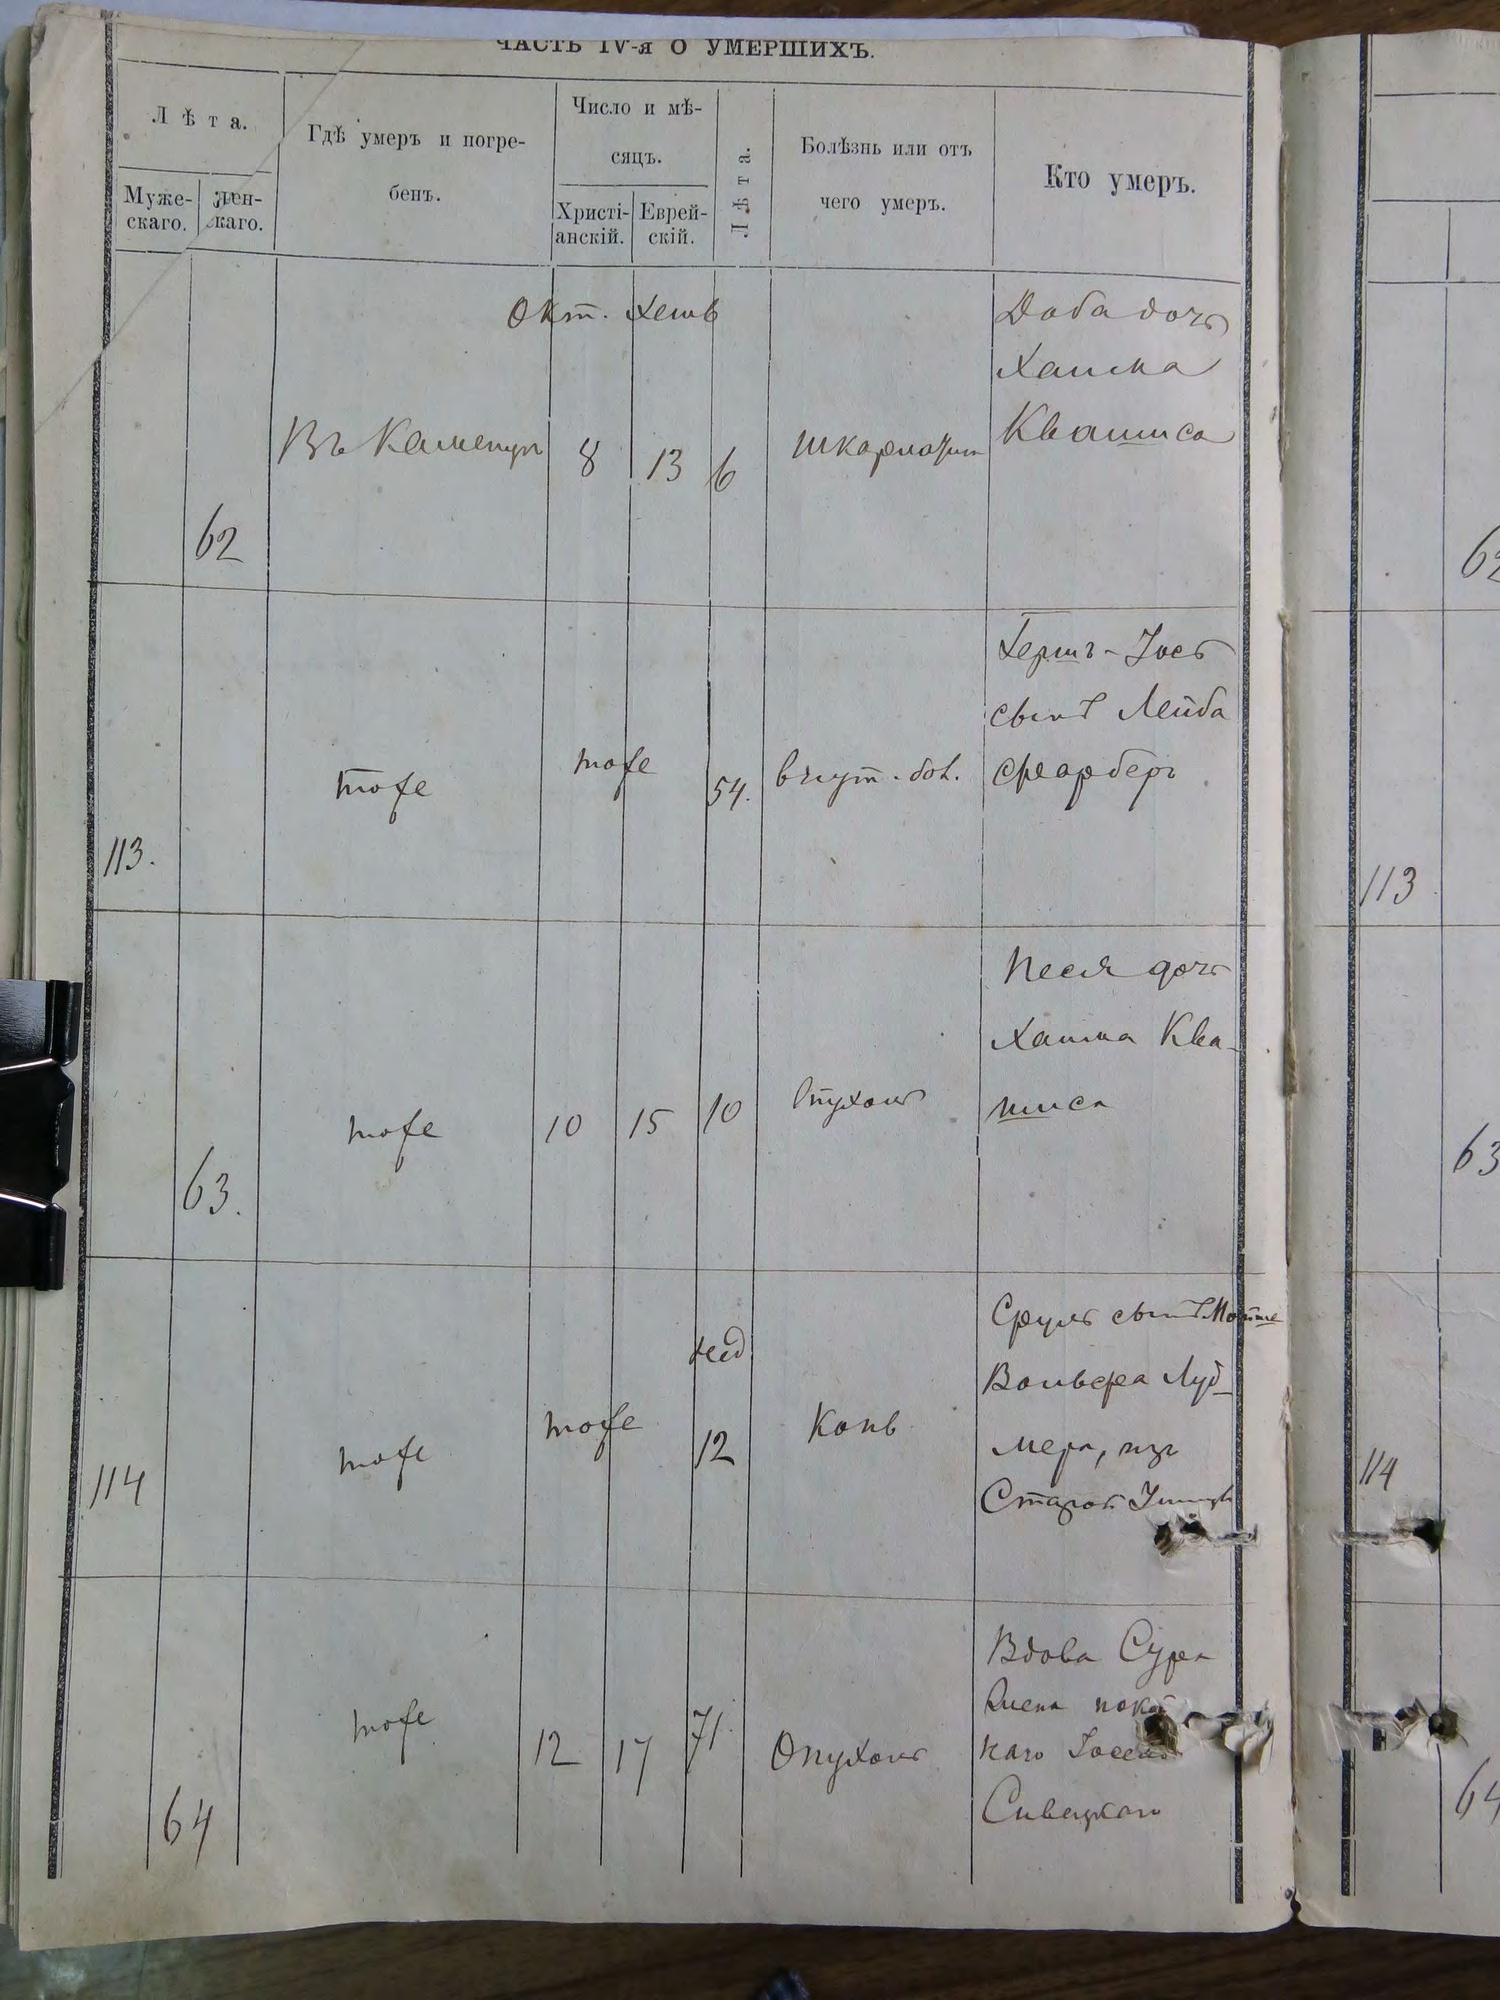 ЧАСТЬ IV-я О УМЕРШИХЪ.
Лѣта.
Муже-
скаго.
Жен-
скаго.
Гдѣ умеръ и погре-
бенъ.
Число и мѣ-
сяцъ.
Христі-
анскій.
Еврей-
скій.
Лѣта.
Болѣзнь или отъ
чего умеръ.
Кто умеръ.
Окт. Хешв
62
Въ Каменцѣ
8
13
6
шкарлатин
Доба дочь
Хаима
Квашиса
62
113.
тоже
тоже
54.
внут. бол.
Герш-Иось
сынъ Лейба
Фарберг
113
63.
тоже
10
15
10
Опухоль
Песя дочь
Хаима Ква-
шиса
63
114
тоже
тоже
нед
12
Коль
Сруль сынъ Мошко
Вольфа Луд-
мера, изъ
Старой Ушицы
114
64
тоже
12
17
71.
Опухоль
Вдова Сура
жена покой
наго Иосель
Сивецкого
64